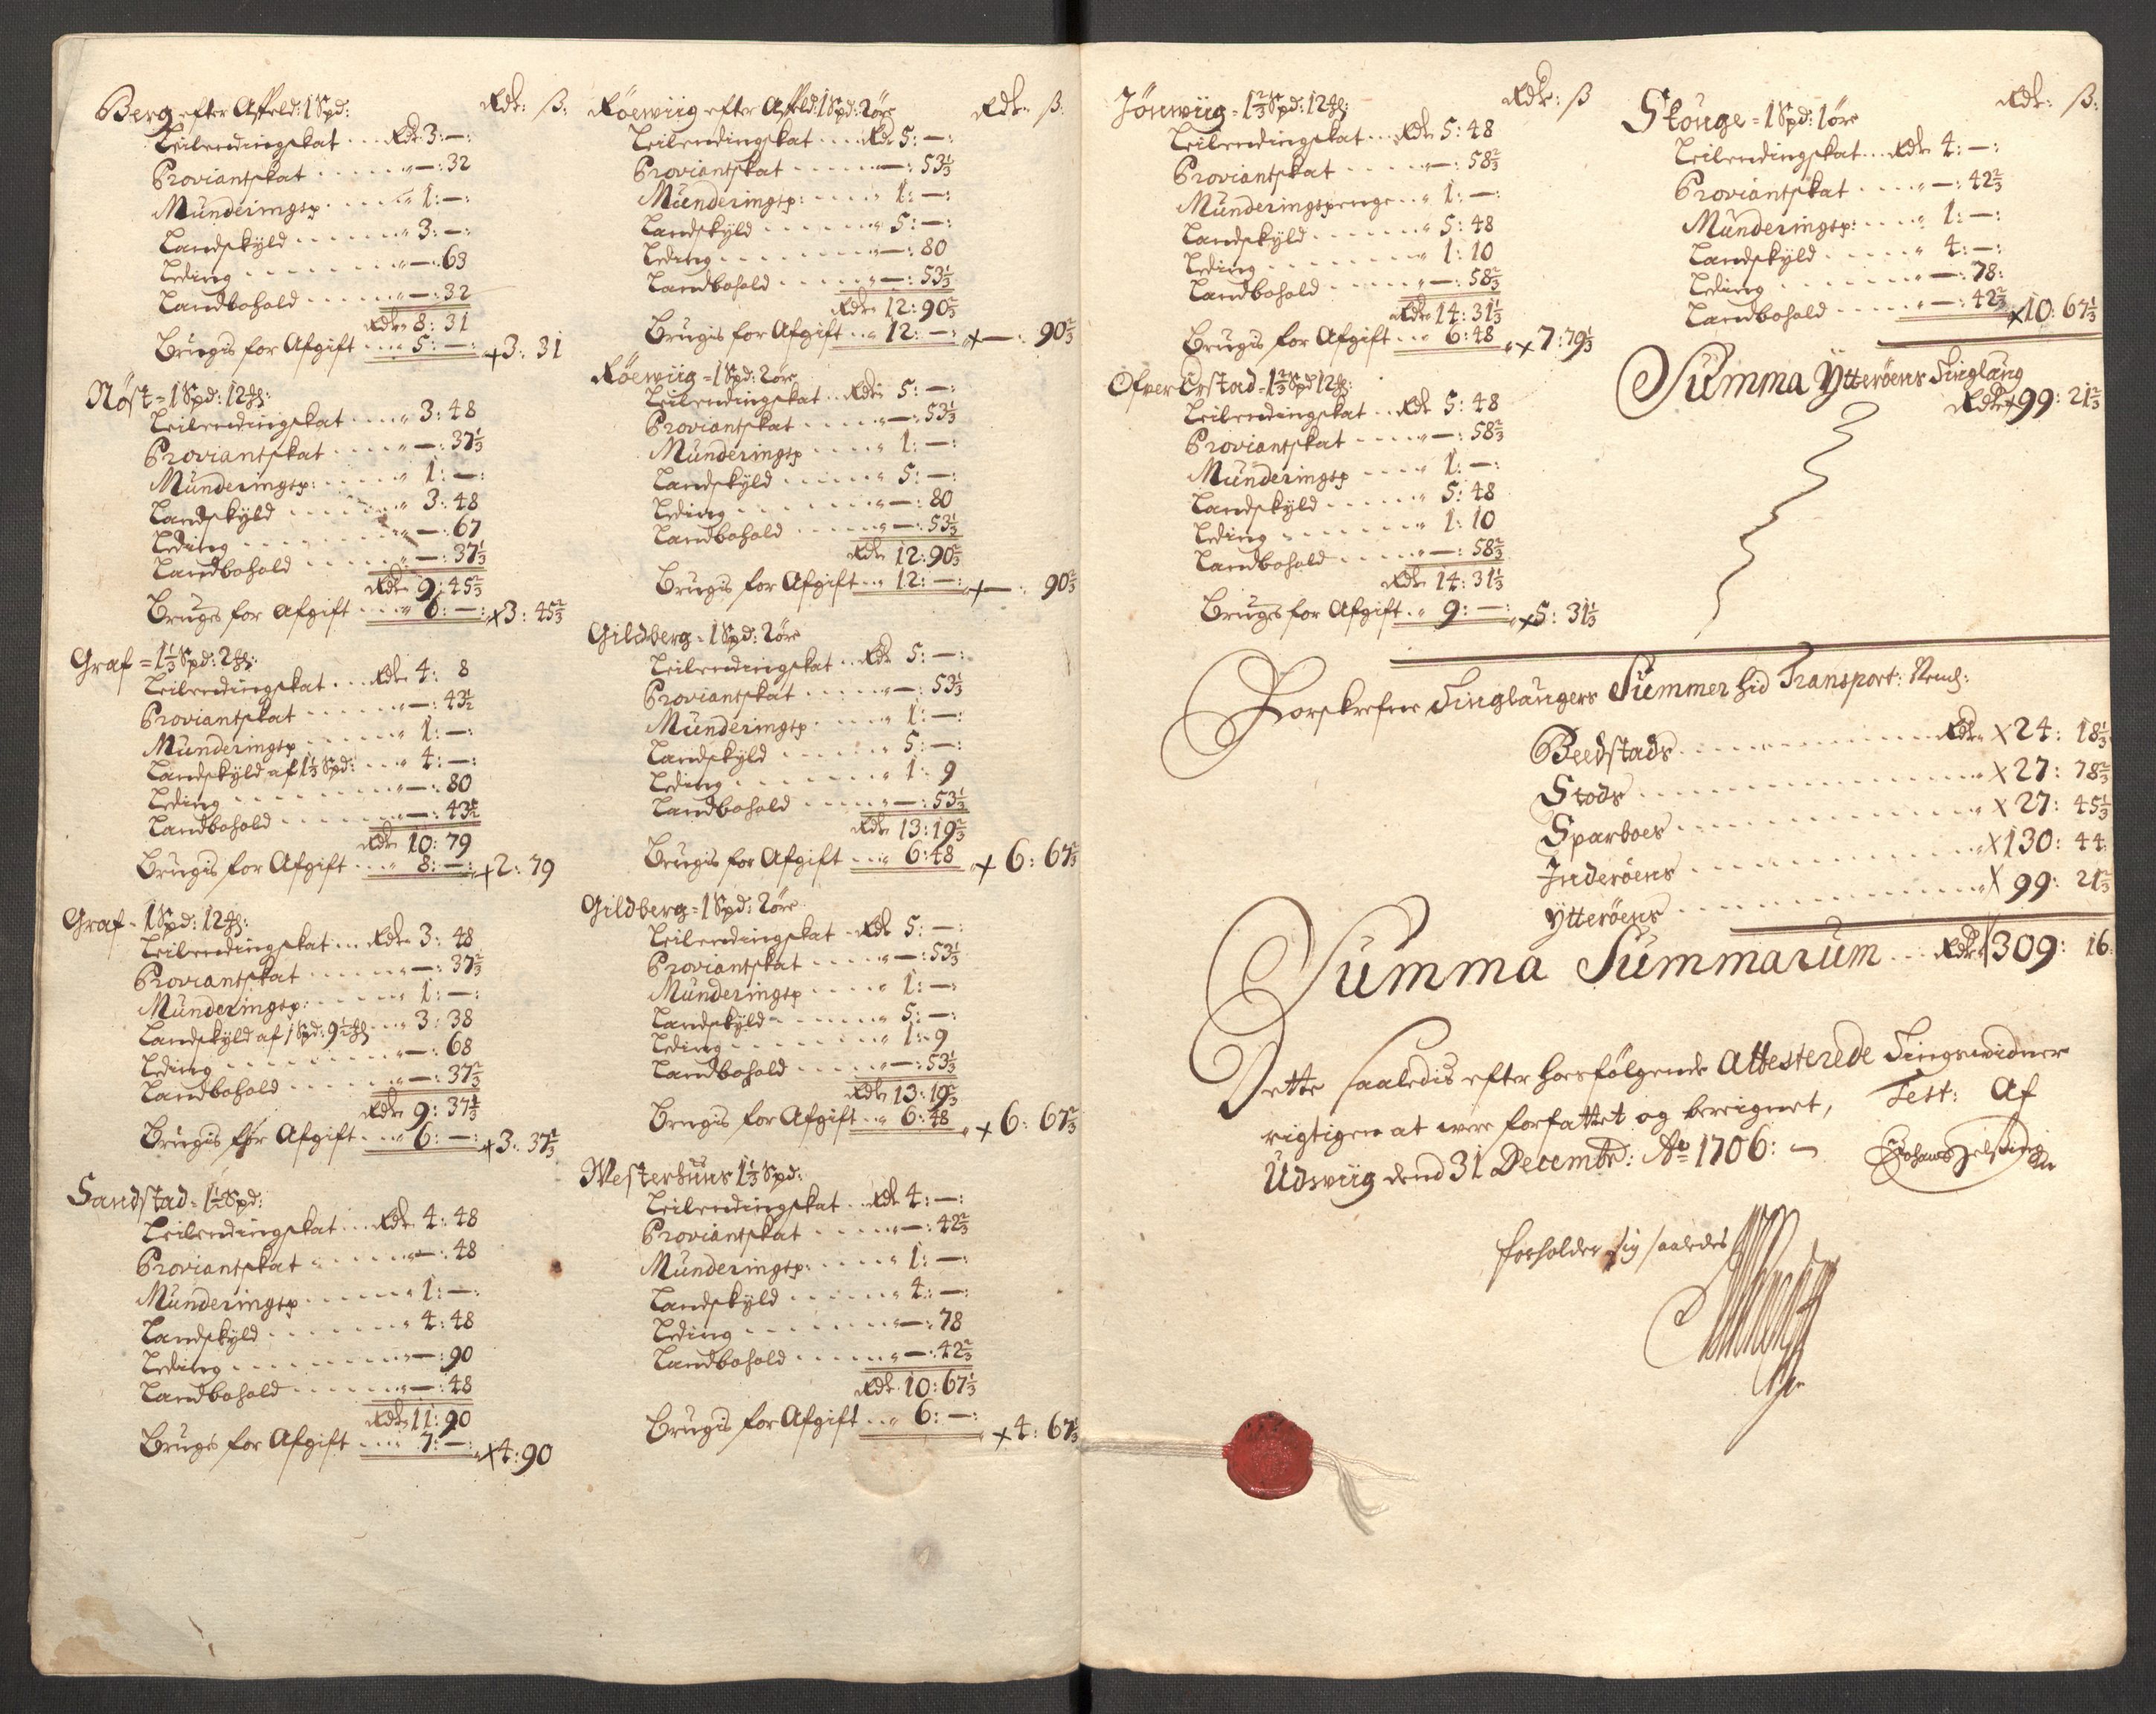 Rdr: ß:
Berg efter Affeld: 1 Spd:
Leilendingskat .... Rdr 3: —:
Proviantskat ...... " —: 32
Munderingsp. .... " 1: —:
Landskyld ...... " 3: —:
Leding ........ " —: 63
Landbohold ...... " —: 32
Rdr 8: 31
Brugis for Afgift .... 5: —: + 3: 31
Nøst = 1 Spd: 12 ℔:
Leilendingskat .... " 3: 48
Proviantskat .... " —: 37⅓
Munderingsp: .... " 1: —:
Landskyld ...... " 3: 48
Leding ........ " —: 67
Landbohold ..... " —: 37⅓
Rdr 9: 45⅔
Bruges for Afgift .... " 6: —: x 3: 45⅔
Graf = 1⅓ Spd: 2 ℔:
Leilendingskat ... Rdr 4: 8
Proviantskat ...... " —: 43½
Munderingsp ...... " 1: —:
Landskyld af 1⅓ Spd: ... " 4: —:
Leding ........ " —: 80
Landbohold ...... " —: 43½
Rdr 10: 79
Brugis for Afgift .... " 8: —: + 2: 79
Graf = 1 Spd: 12 ℔:
Leilendingskat ... Rdr 3: 48
Proviantskat ...... " —: 37⅔
Munderingsp: ..... " 1: —:
Landskyld af 1 Spd: 9½ ℔ ... " 3: 38
Leding ........ " —: 68
Landbohold ...... " —: 37⅔
Rdr 9: 37⅓
Brugis for Afgift .... " 6: —: + 3: 37⅓
Sandstad = 1½ Spd:
Leilendingskat ... Rdr 4: 48
Proviantskat ...... " —: 48
Munderingsp ...... " 1: —:
Landskyld ...... " 4: 48
Leding ........ " —: 90
Landbohold ...... " —: 48
Rdr 11: 90
Bruges for Afgift .... 7: —: x 4: 90
Rdr: ß:
Röewiig efter Affeld: 1 Spd: 2 öre
Leilendingskat .... Rdr 5: —:
Proviantskat ...... " —: 53⅓
Munderingsp: .... " 1: —:
Landskyld ...... " 5: —:
Leding ........ " —: 80
Landbohold ..... " —: 53⅓
Rdr 12: 90⅔
Brugis for Afgift ... " 12: —: x —: 90⅔
Röewiig = 1 Spd: 2 öre
Leilendingskat .. Rdr 5: —:
Proviantskat ..... " —: 53⅓
Munderingsp .... " 1: —:
Landskyld ...... " 5: —:
Leding ....... " —: 80
Landbohold ..... " —: 53⅓
Rdr 12: 90⅔
Brugis for Afgift ... " 12: —: + —: 90⅔
Gildberg = 1 Spd: 2 öre
Leilendingskat .. Rdr 5: —:
Proviantskat ..... " —: 53⅓
Munderingsp. .... " 1: —:
Landskyld ...... " 5: —:
Leding ....... " 1: 9
Landbohold ..... " —: 53⅓
Rdr 13: 19⅔
Brugis for Afgift .... " 6: 48 + 6: 67⅔
Gildberg = 1 Spd: 2 öre
Leilendingskat . Rdr 5: —:
Proviantskat ..... " —: 53⅓
Munderingsp .... " 1: —:
Landskyld ...... " 5: —:
Leding ....... " 1: 9
Landbohold ..... " —: 53⅓
Rdr 13: 19⅔
Brugis for Afgift ... " 6: 48 + 6: 67⅔
Westerhuus 1⅓ Spd:
Leilendingskat .. Rdr 4: —:
Proviantskat ..... " —: 42⅔
Munderingsp: .... " 1: —:
Landskyld ...... " 4: —:
Leding ....... " —: 78
Landbohold ..... " —: 42⅔
Rdr 10: 67⅓
Brugis for Afgift ... " 6: —: x 4: 67⅓
Rdr: ß
Jönwiig = 1⅔ Spd: 12 ℔:
Leilendingskat ... Rdr 5: 48
Proviantskat ..... " —: 58⅔
Munderingspenge .. " 1: —:
Landskyld ...... " 5: 48
Leding ....... " 1: 10
Landbohold ..... " —: 58⅔
Rdr 14: 31⅓
Brugis for Afgift ... " 6: 48 x 7: 79⅓
Ofver Erstad = 1⅔ Spd 12 ℔:
Leilendingskat ... Rdr 5: 48
Proviantskat .... " —: 58⅔
Munderingsp .... " 1: —:
Landskyld ...... " 5: 48
Leding ....... " 1: 10
Landbohold ..... " —: 58⅔
Rdr 14: 31⅓
Bruges for Afgift .. " 9: —: x 5: 31⅓
Rdr: ß:
Slouge = 1 Spd: 1 öre
Leilendingskat ... Rdr 4: —:
Proviantskat .... " —: 42⅔
Munderingsp: .... " 1: —:
Landskyld ..... " 4: —:
Leding ....... " —: 78:
Landbohold ..... " —: 42⅔ x 10: 67⅓
Summa Ytterøens Tinglaug
Rdr x 99: 21⅔
Forskrefne Tinglaugers Summer hid Transport: Neml:
Beedstads ........ Rdr x 24: 18⅓
Stods ........ " x 27: 78⅔
Sparboes ........ " x 27: 45⅓
Inderöens ........ " x 130: 44:
Ytteröens ........ " x 99: 21⅔
Summa Summarum ... Rdr 309: 16:
Dette saaledis efter hosfølgende Attesterede Tingswidner
rigtigen at were forfattet og bereignet, Test: Af
Udswiig dend 31 Decembr: Ao 1706:
forholder sig saaledes